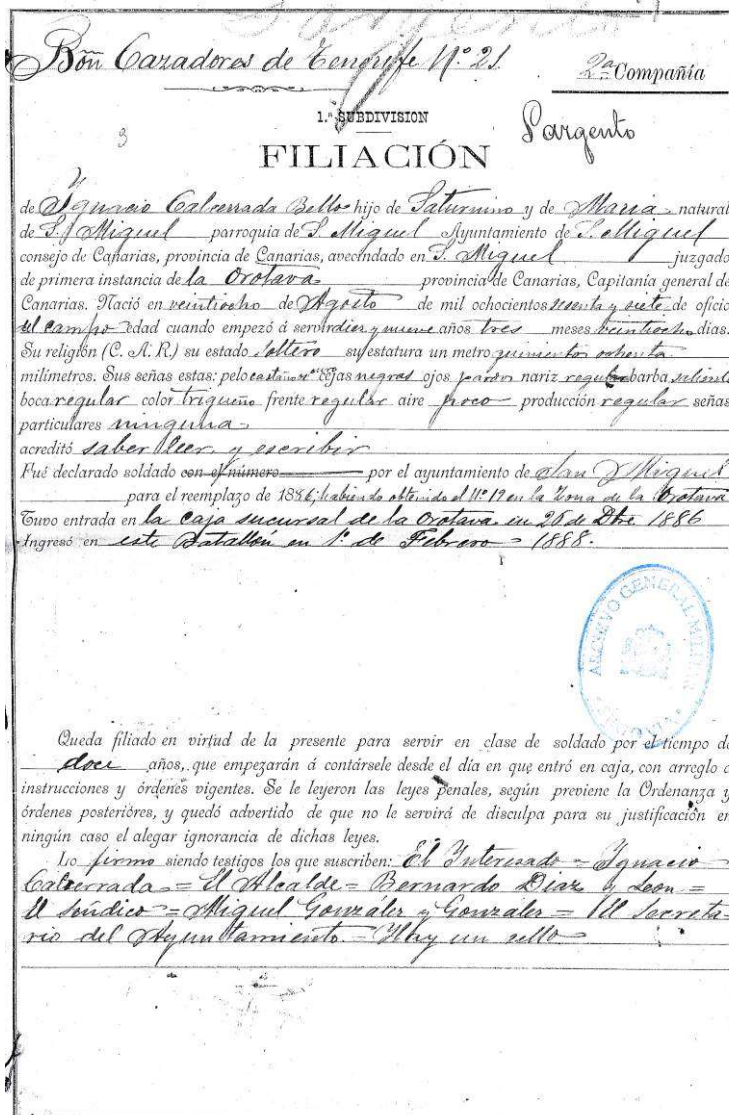 Bón Cazadores de Tenerife Nº 21
2ª Compañía
1.ª SUBDIVISION
Sargento
3
FILIACIÓN
de Ignacio Calcerrada Bello hijo de Saturnino y de Maria natural
de S. Miguel parroquia de S. Miguel Ayuntamiento de S. Miguel
consejo de Canarias, provincia de Canarias, avecindado en S. Miguel juzgado
de primera instancia de la Orotava provincia de Canarias, Capitanía general de
Canarias. Nació en veintiocho de Agosto de mil ochocientos sesenta y siete de oficio
del campo edad cuando empezó á servir diez y nueve años tres meses veintiocho dias.
Su religión (C. A. R.) su estado soltero su estatura un metro quinientos ochenta
milímetros. Sus señas estas: pelo castaño cejas negras ojos pardos nariz regular barba saliente
boca regular color trigueño frente regular aire poco producción regular señas
particulares ninguna
acreditó saber leer y escribir
Fué declarado soldado con el número por el ayuntamiento de San Miguel
para el reemplazo de 1886; habiendo obtenido el Nº 19 en la Zona de la Orotava
Tuvo entrada en la caja sucursal de la Orotava en 26 de Dbre 1886
Ingresó en este Batallón en 1º de Febrero = 1888.
ARCHIVO GENERAL MILITAR
Queda filiado en virtud de la presente para servir en clase de soldado por el tiempo de
doce años, que empezarán á contársele desde el día en que entró en caja, con arreglo á
instrucciones y órdenes vigentes. Se le leyeron las leyes penales, según previene la Ordenanza y
órdenes posteriores, y quedó advertido de que no le servirá de disculpa para su justificación en
ningún caso el alegar ignorancia de dichas leyes.
Lo firmo siendo testigos los que suscriben: El Interesado = Ignacio
Calcerrada = El Alcalde = Bernardo Diaz y Leon =
El Síndico = Miguel González y González = El Secreta-
rio del Ayuntamiento = Hay un sello